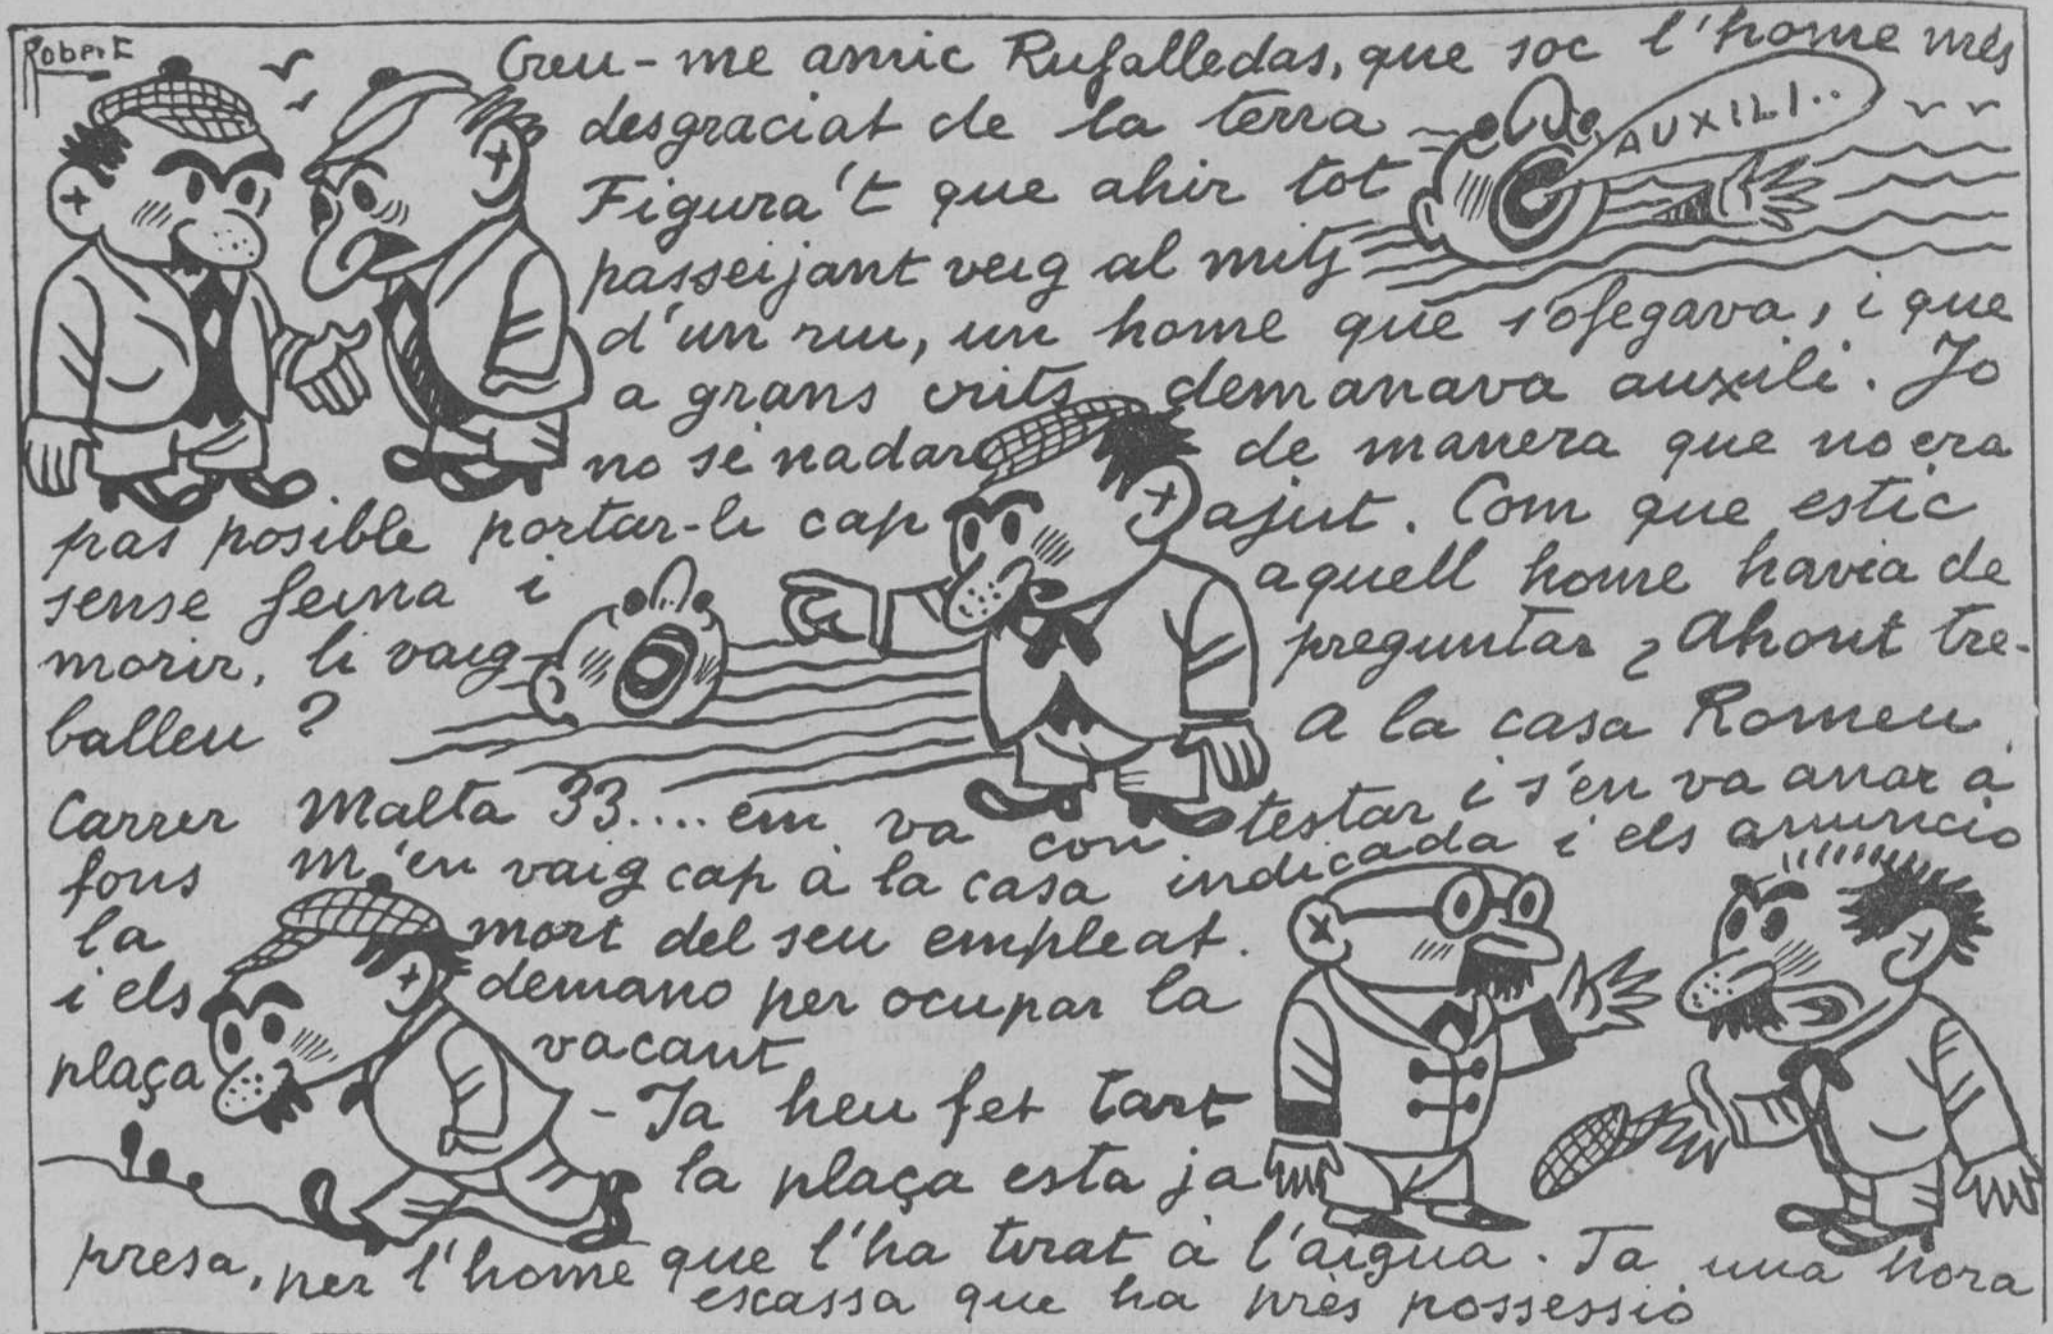 Robert
Creu-me amic Rufalledas, que soc l'home més
desgraciat de la terra
AUXILI..
Figura't que ahir tot
passeijant veig al mitj
d'un riu, un home que s'ofegava, i que
a grans crits demanava auxili. Jo
no sé nadar de manera que no era
pas posible portar-li cap ajut. Com que estic
sense feina i aquell home havia de
morir, li vaig preguntar ¿Ahont tre-
balleu? A la casa Romeu
Carrer Malta 33.... em va contestar i s'en va anar a
fons m'en vaig cap a la casa indicada i els anuncio
la mort del seu empleat.
i els demano per ocupar la
plaça vacant
- Ja heu fet tart
la plaça esta ja
presa, per l'home que l'ha tirat à l'aigua. Ja una hora
escassa que ha près possessió